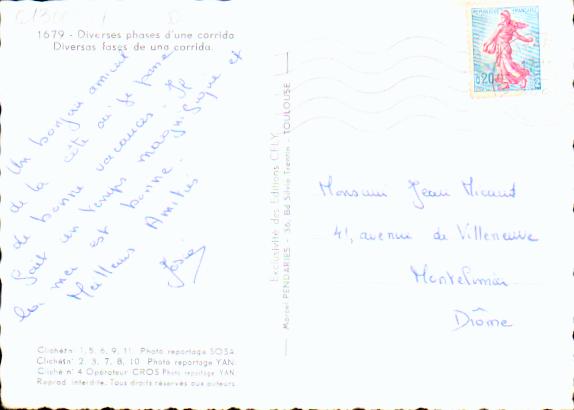 1679 - Diverses phases d'une corrida
Diversas fases de una corrida.
Un bonjour amical
de la côte où je passe
de bonne vacances. Il
fait un temps magnifique et
la mer est bonne.
Meilleurs Amitiés
Josie
Exclusivité des Editions CELY
Marcel PENDARIES - 36, Bd Silvio Trentin - TOULOUSE
REPUBLIQUE FRANÇAISE
0,20
Monsieur Jean Micaud
41, avenue de Villeneuve
Montélimar
Drôme
Clichés n° 1, 5, 6, 9, 11. Photo reportage SOSA.
Clichés n° 2, 3, 7, 8, 10. Photo reportage YAN.
Cliché n° 4 Opérateur CROS Photo reportage YAN
Reprod. interdite. Tous droits réservés aux auteurs.